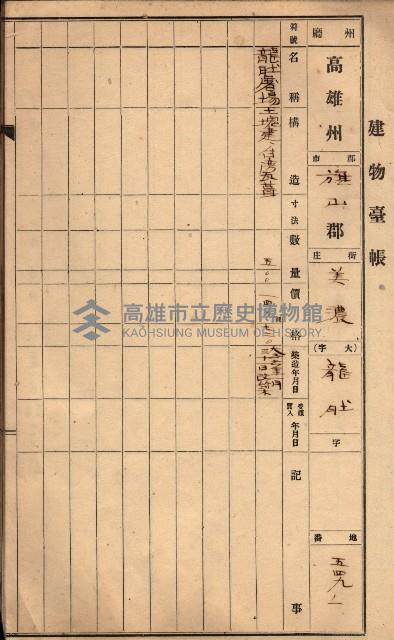 建物臺帳
州廳 高雄州
郡市 旗山郡
街庄 美濃
(大字) 龍肚
字
地番 五四九ノ一
符號
名稱
構造
寸法
數量
價格
築造年月日
受讓買入年月日
記事
龍肚屠場 土塊造台湾瓦葺
高雄市立歷史博物館
KAOHSIUNG MUSEUM OF HISTORY